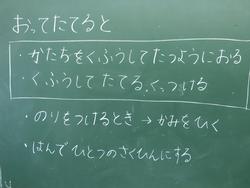 おってたてると
・かたちをくふうしてたつようにおる
・くふうしてたてる、くっつける
・のりをつけるとき→かみをひく
・はんでひとつのさくひんにする